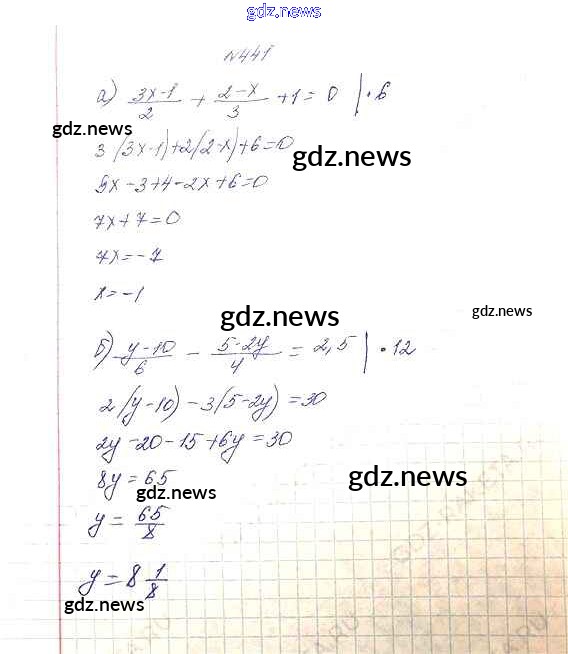 gdz.news
№441
а) 3x-1/2 + 2-x/3 + 1 = 0 | · 6
gdz.news
3(3x-1)+2(2-x)+6=0
gdz.news
9x-3+4-2x+6=0
7x+7=0
7x=-7
x=-1
gdz.news
gdz.news
б) y-10/6 - 5-2y/4 = 2,5 | · 12
2(y-10)-3(5-2y)=30
2y-20-15+6y=30
8y=65
gdz.news
gdz.news
y=65/8
y=8 1/8
gdz.news